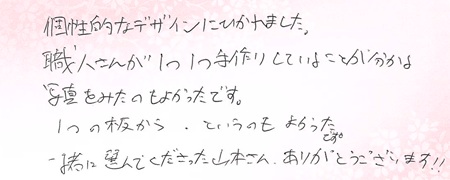 個性的なデザインにひかれました。
職人さんが1つ1つ手作りしていることが分かる
写真をみたのもよかったです。
1つの板から、というのもよかったです。
一緒に選んでくださった山本さん、ありがとうございます!!